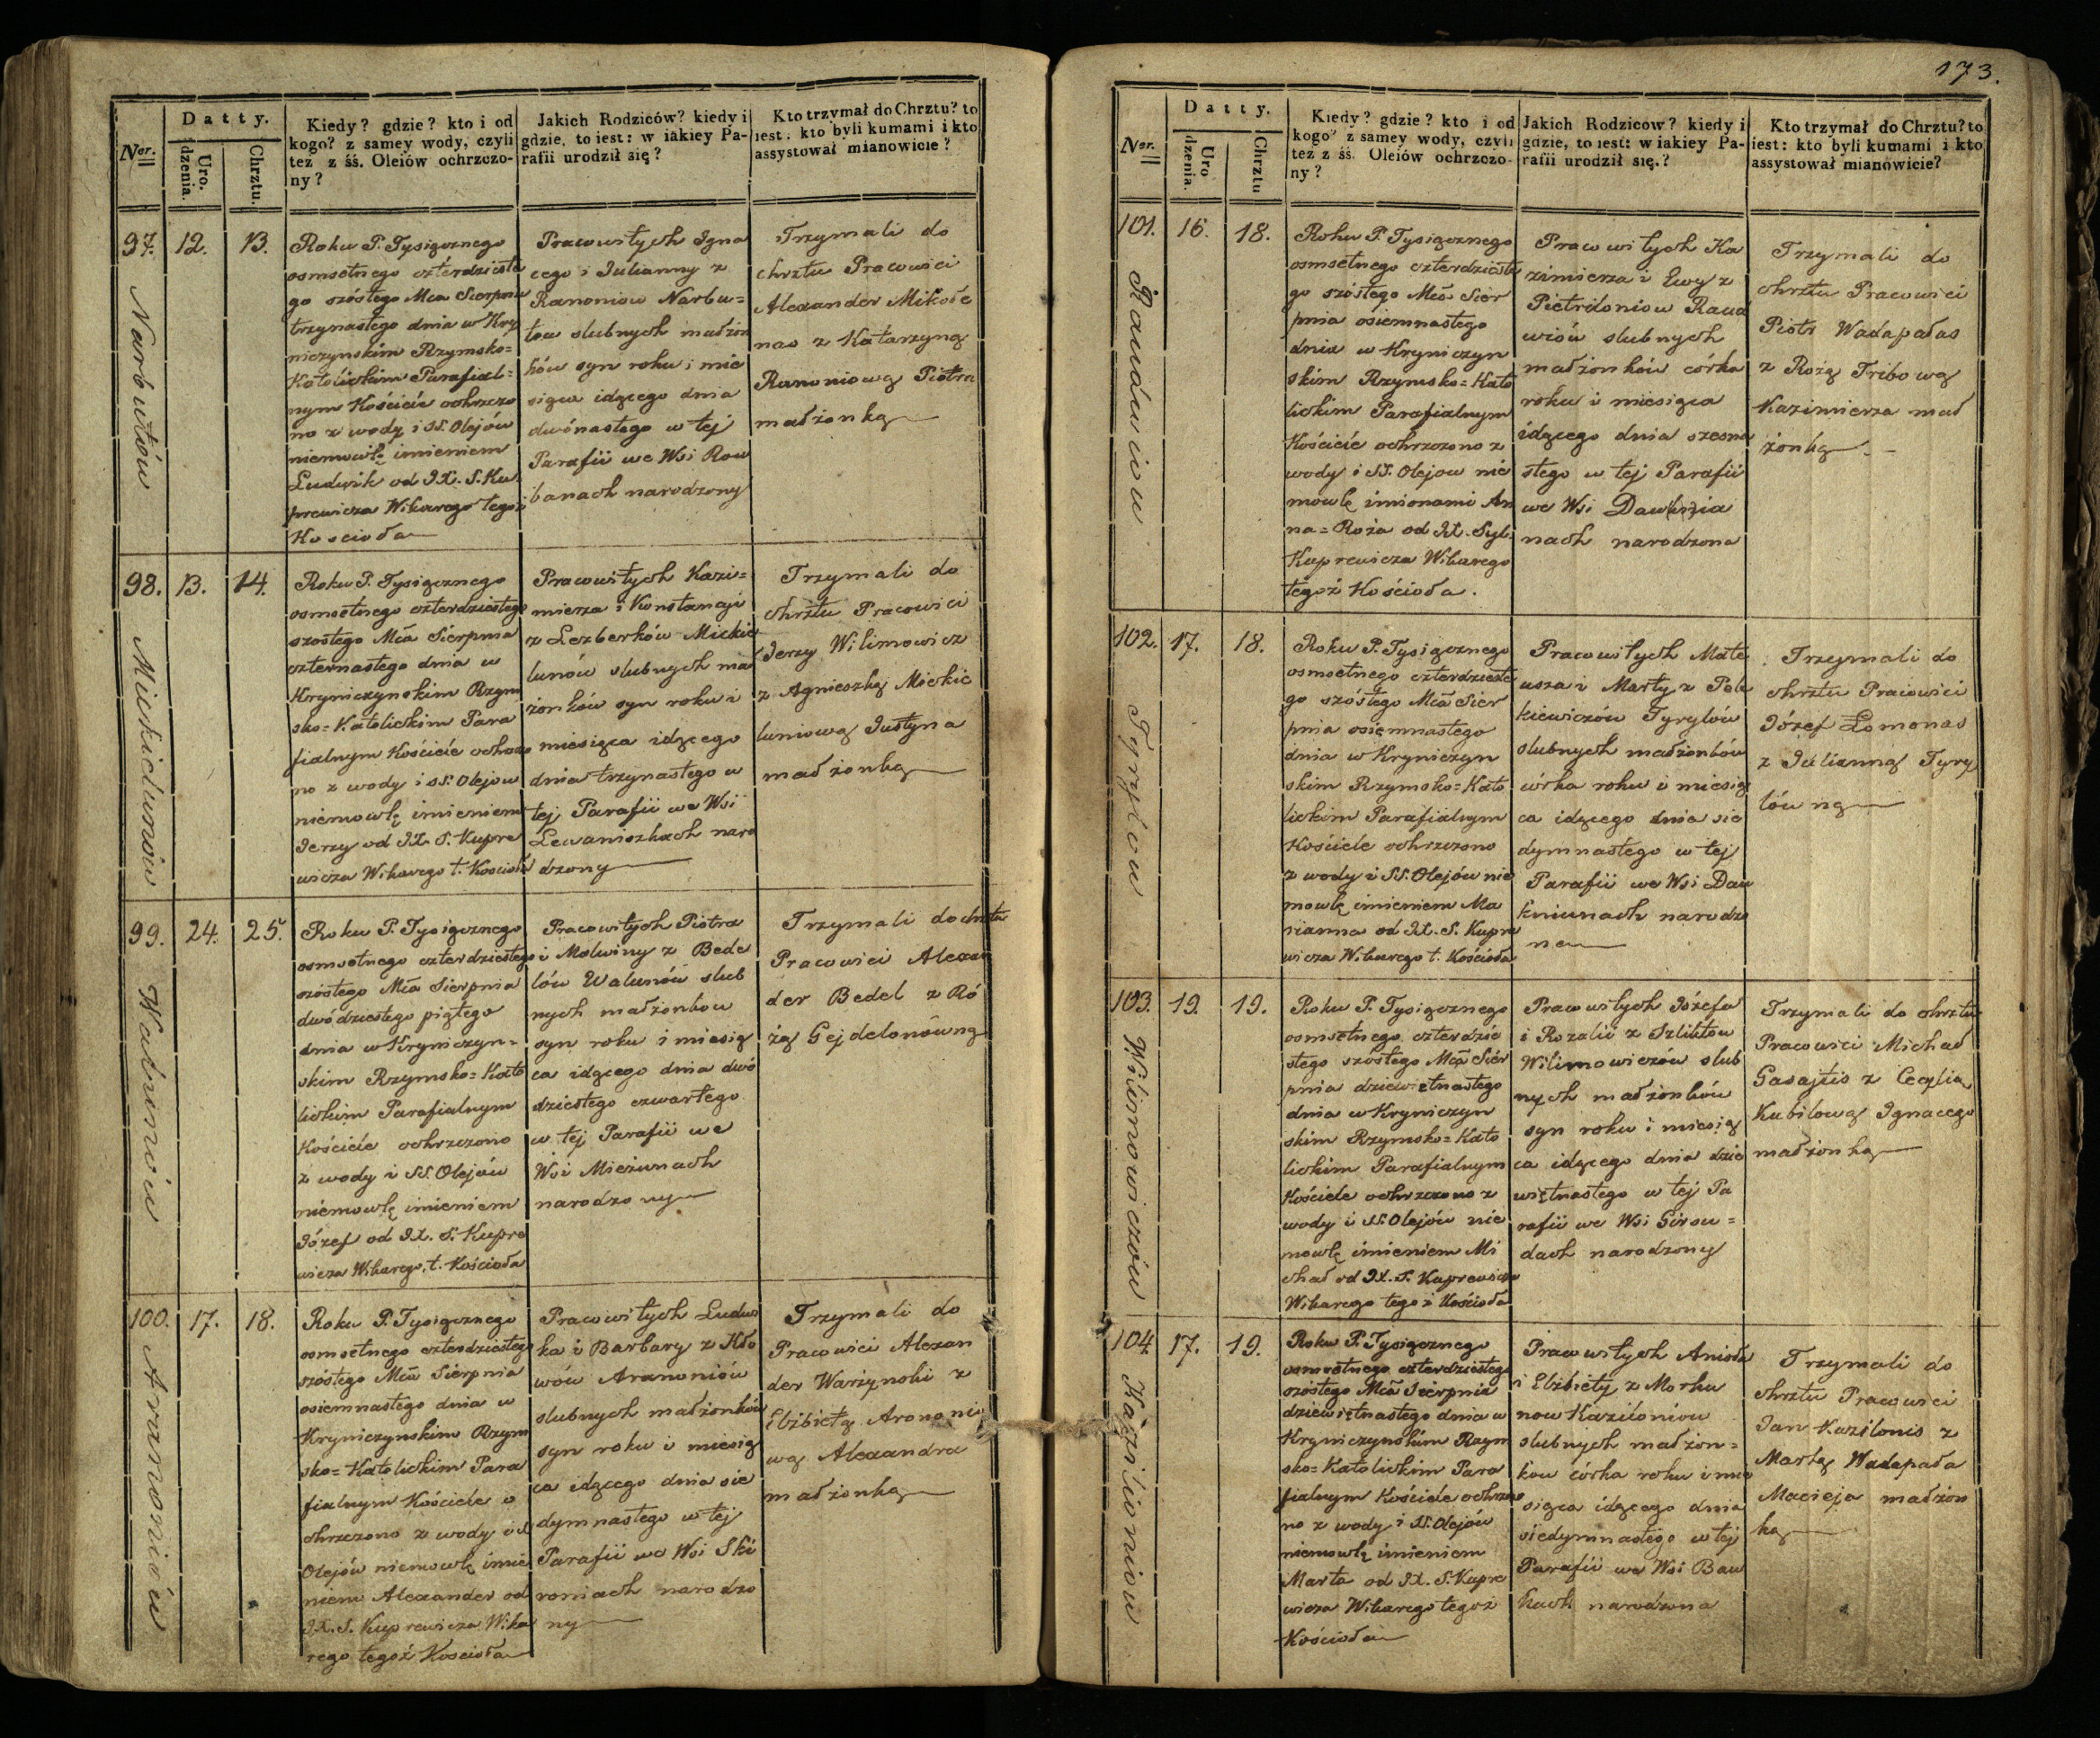 Nor.
Datty.
Uro.
dzenia.
Chrztu.
Kiedy? gdzie? kto i od
kogo? z samey wody, czyli
też z śś. Oleiów ochrzczo-
ny?
Jakich Rodziców? kiedy i
gdzie, to iest: w iakiey Pa-
rafii urodził się?
Kto trzymał do Chrztu? to
iest: kto byli kumami i kto
assystował mianowicie?
97.
Narbutów
12.
13.
Roku P. Tysiącznego
osmsetnego czterdzieste
go szóstego Mca Sierpnia
trzynastego dnia w Kry
niczynskim Rzymsko=
Katolickim Parafial=
nym Kościele ochrzczo
no z wody i SS. Olejów
niemowlę imieniem
Ludwik od JX. S. Ku
prewicza Wikarego tegoż
Kościoła
Pracowitych Igna
cego i Julianny z
Ranoniow Narbu=
tow slubnych małżon
ków syn roku i mie
siąca idącego dnia
dwónastego w tej
Parafii we Wsi Row
banach narodzony
Trzymali do
chrztu Pracowici
Alexander Mikołe
nas z Katarzyną
Ranoniową Piotra
małżonką
98.
Mickielunów
13.
14.
Roku P. Tysiącznego
osmsetnego czterdziestego
szostego Mca Sierpnia
czternastego dnia w
Kryniczynskim Rzym
sko=Katolickim Para
fialnym Kościele ochrzczo
no z wody i SS. Olejow
niemowlę imieniem
Jerzy od JX. S. Kupre
wicza Wikarego t. Kościoła
Pracowitych Kazi=
mierza i Konstancji
z Lezberków Mickie
lunów slubnych mał
żonków syn roku i
miesiąca idącego
dnia trzynastego w
tej Parafii we Wsi
Lewaniszkach naro
dzony
Trzymali do
chrztu Pracowici
Jerzy Wilimowicz
z Agnieszką Mickie
luniową Justyna
małżonką
99.
Walunów
24.
25.
Roku P. Tysiącznego
osmsetnego czterdziestego
szóstego Mca Sierpnia
dwódziestego piątego
dnia w Kryniczyn=
skim Rzymsko=Kato
lickim Parafialnym
Kościele ochrzczono
z wody i SS. Olejów
niemowlę imieniem
Józef od JX. S. Kupre
wicza Wikarego t. Kościoła
Pracowitych Piotra
i Malwiny z Bede
lów Walunów slub
nych małżonkow
syn roku i miesią
ca idącego dnia dwó
dziestego czwartego
w tej Parafii we
Wsi Mieżunach
narodzony
Trzymali do chrztu
Pracowici Alexan
der Bedel z Ró
żą Gejdelonówną
100.
Aranoniów
17.
18.
Roku P. Tysiącznego
osmsetnego czterdziestego
szóstego Mca Sierpnia
osiemnastego dnia w
Kryniczynskim Rzym
sko=Katolickim Para
fialnym Kościele o
chrzczono z wody i S
Olejów niemowlę imie
niem Alexander od
JX. S. Kuprewicza Wika
rego tegoż Kościoła
Pracowitych Ludwi
ka i Barbary z Kło
wów Aranoniów
slubnych małżonków
syn roku i miesią
ca idącego dnia sie
dymnastego w tej
Parafii we Wsi Ski
roniach narodzo
ny
Trzymali do
Pracowici Alexan
der Warżynski z
Elżbietą Arononio
wą Alexandra
małżonką
173.
Nor.
Datty.
Uro
dzenia.
Chrztu
Kiedy? gdzie? kto i od
kogo? z samey wody, czyli
też z śś. Oleiów ochrzczo-
ny?
Jakich Rodzicow? kiedy i
gdzie, to iest: w iakiey Pa-
rafii urodził się.?
Kto trzymał do Chrztu? to
iest: kto byli kumami i kto
assystował mianowicie?
101.
Rawdwiow
16.
18.
Roku P. Tysiącznego
osmsetnego czterdzieste
go szóstego Mca Sier
pnia osiemnastego
dnia w Kryniczyn
skim Rzymsko=Kato
lickim Parafialnym
Kościele ochrzczono z
wody i SS. Olejow nie
mowlę imionami An
na=Roża od JX. Syl.
Kuprewicza Wikarego
tegoż Kościoła.
Pracowitych Ka
zimierza i Ewy z
Pietridoniow Rawd
wiów slubnych
małżonków córka
roku i miesiąca
idącego dnia szesna
stego w tej Parafii
we Wsi Dawknia
nach narodzona
Trzymali do
chrztu Pracowici
Piotr Wadapałas
z Rożą Tribową
Kazimierza mał
żonką.
102.
Tyrylow
17.
18.
Roku P. Tysiącznego
osmsetnego czterdzieste
go szóstego Mca Sier
pnia osiemnastego
dnia w Kryniczyn
skim Rzymsko=Kato
lickim Parafialnym
Kościele ochrzczono
z wody i SS. Olejów nie
mowlę imieniem Ma
rianna od JX. S. Kupre
wicza Wikarego t. Kościoła
Pracowitych Mate
usza i Marty z Pet
kiewiczów Tyrylów
slubnych małżonków
córka roku i miesią
ca idącego dnia sie
dymnastego w tej
Parafii we Wsi Daw
kniunach narodzo
na
Trzymali do
chrztu Pracowici
Józef Łomonas
z Julianną Tyry
lówną
103.
Wilimowiczów
19.
19.
Roku P. Tysiącznego
osmsetnego czterdzie
stego szóstego Mca Sier
pnia dziewiętnastego
dnia w Kryniczyn
skim Rzymsko=Kato
lickim Parafialnym
Kościele ochrzczono z
wody i SS. Olejów nie
mowlę imieniem Mi
chał od JX. S. Kuprewicza
Wikarego tegoż Kościoła
Pracowitych Józefa
i Rozalii z Szliktow
Wilimowiczów slub
nych małżonków
syn roku i miesią
ca idącego dnia dzie
więtnastego w tej Pa
rafii we Wsi Girsu=
dach narodzony
Trzymali do chrztu
Pracowici Michał
Gasajtis z Cecylią
Kubilową Ignacego
małżonką
104.
Każilioniow
17.
19.
Roku P. Tysiącznego
osmsetnego czterdziestego
szostego Mca Sierpnia
dziewiętnastego dnia w
Kryniczynskim Rzym
sko=Katolickim Para
fialnym Kościele ochrzczo
no z wody i SS. Olejów
niemowlę imieniem
Marta od JX. S. Kupre
wicza Wikarego tegoż
Kościoła
Pracowitych Anioła
i Elżbiety z Morku
now Kaziloniow
slubnych małżon=
kow córka roku i mie
siąca idącego dnia
siedymnastego w tej
Parafii we Wsi Baw
kach narodzona
Trzymali do
chrztu Pracowici
Jan Kazilonis z
Martą Wadapała
Macieja małżon
ką